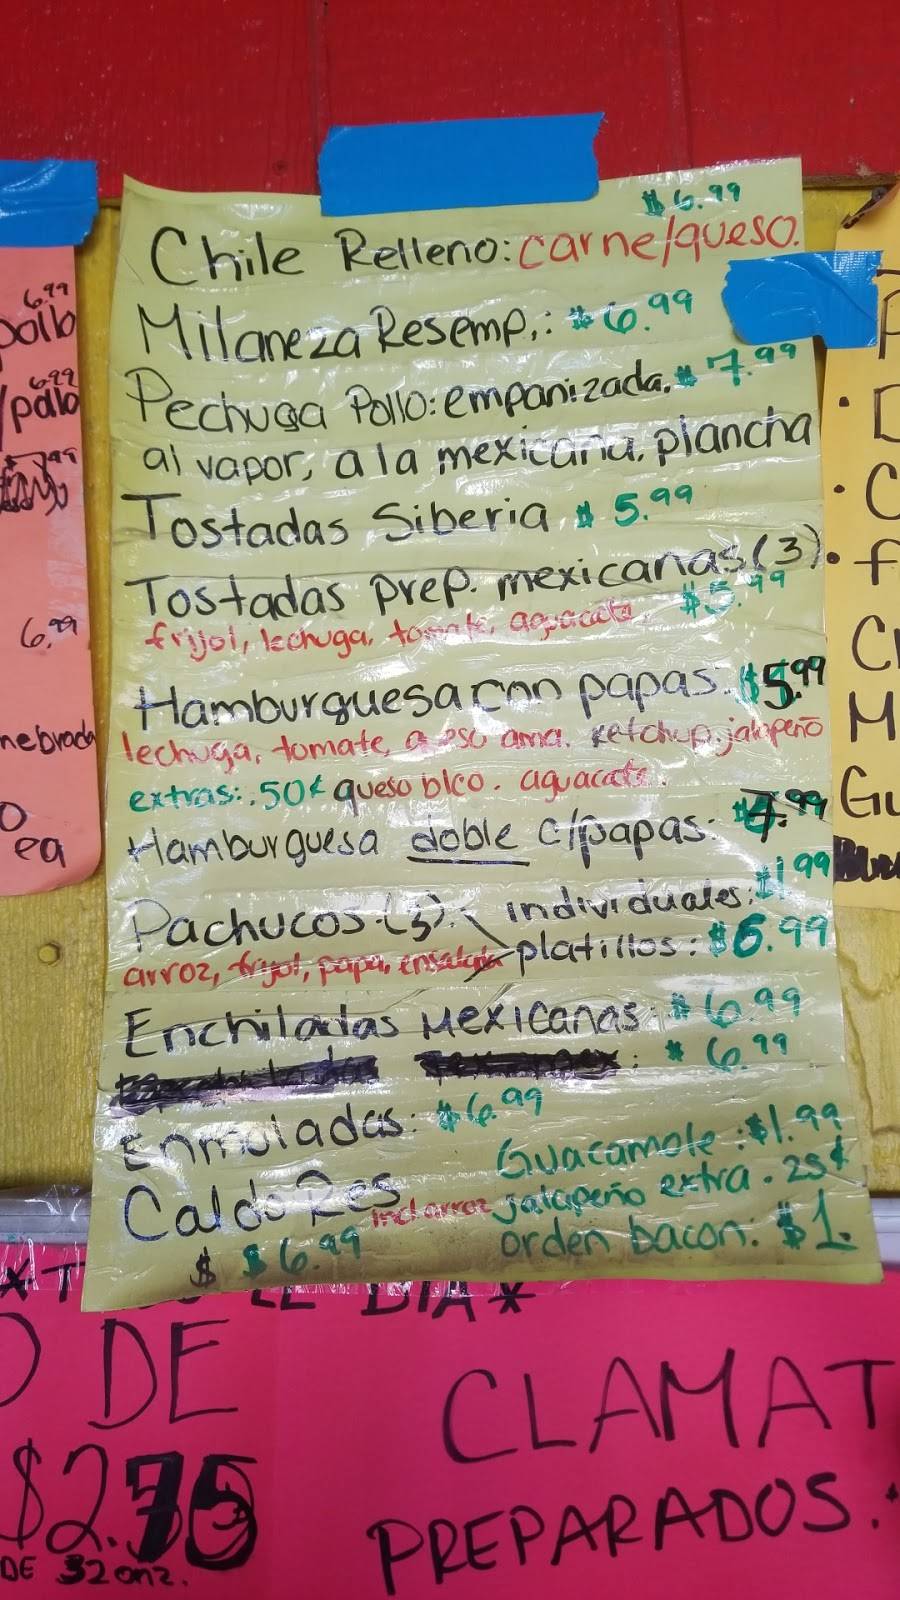 $6.99
Chile Relleno: carne/queso.
Milaneza Res emp.: $6.99
Pechuga Pollo: empanizada. $7.99
al vapor, a la mexicana. plancha
Tostadas Siberia $5.99
Tostadas prep. mexicanas (3)
frijol, lechuga, tomate, aguacate. $5.99
Hamburguesa con papas: $5.99
lechuga, tomate, queso ama. ketchup. jalapeño
extras: .50¢ queso blco. aguacate.
Hamburguesa doble c/papas: $7.99
Pachucos (3): individuales: $1.99
arroz, frijol, papa, ensalada platillos: $6.99
Enchiladas Mexicanas: $6.99
: $6.99
Enmoladas: $6.99
Guacamole: $1.99
Caldo Res incl arroz
jalapeño extra. 25¢
$ $6.99
orden bacon: $1.
6.99
pollo
6.99
/pollo
.99
6.99
ea
EL DIA*
DE
$2.75
DE 32 onz.
CLAMAT
PREPARADOS.